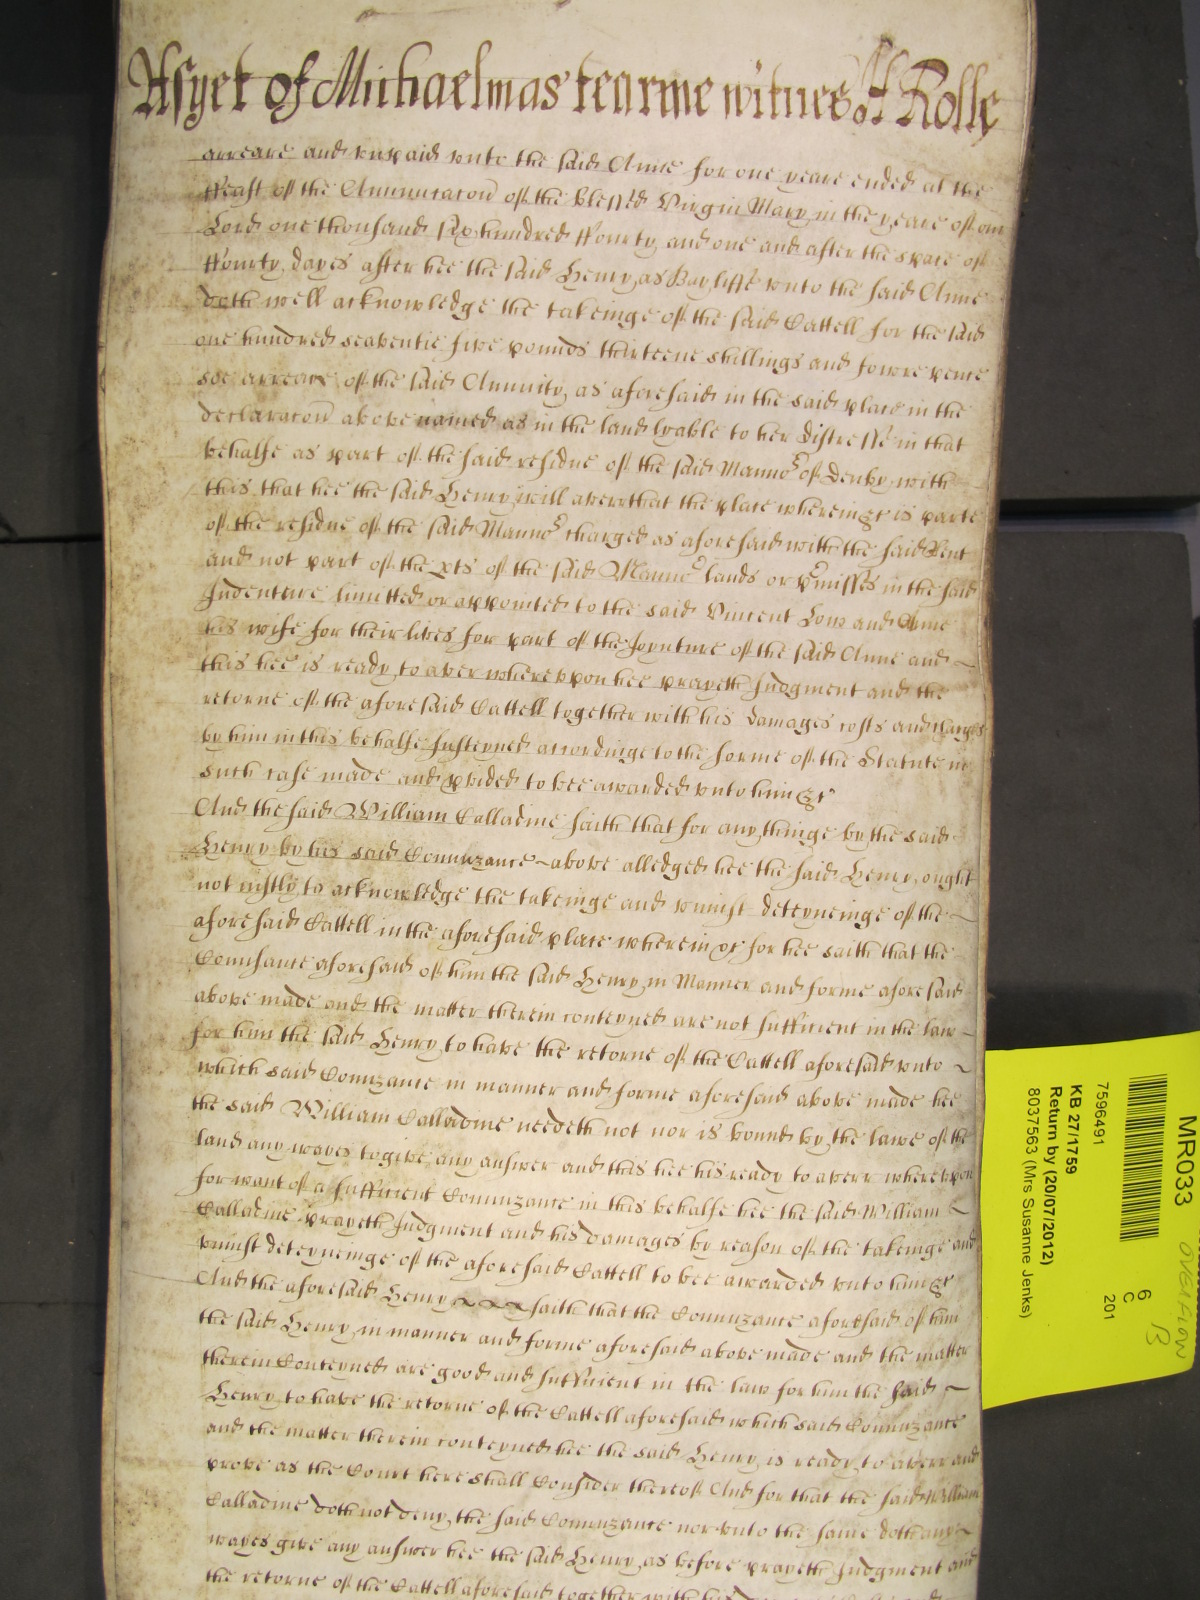 As yet of Michaelmas tearme witnes H Rolle
arreare and unpaid unto the said Anne for one yeare ended at the
ffeast of the Annuntacon of the blessed Virgin Mary in the yeare of our
Lord one thousand six hundred ffourty and one and after the space of
ffourty dayes after hee the said Henry as Bayliffe unto the said Anne
doth well acknowledge the takeinge of the said Cattell for the said
one hundred seaventie five pounds thirteene shillings and fowre pence
soe arreare of the said Annuity as aforesaid in the said place in the
declaracon above named as in the land lyable to her distresse in that
behalfe as part of the said residue of the said Manno of Denby with
this that hee the said Henry will averr that the place wherein &c is parte
of the residue of the said Manno charged as aforesaid with the said Rent
and not part of the pts of the said Manno lands or pmisses in the said
Indenture limitted or appointed to the said Vincent Low and Anne
his wife for their lives for part of the Joynture of the said Anne and
this hee is ready to aver whereuppon hee prayeth Judgment and the
retorne of the aforesaid Cattell together with his damages costs and charges
by him in this behalfe susteyned accordinge to the forme of the Statute in
such case made and pvided to bee awarded unto him &c
And the said William Calladine saith that for any thinge by the said
Henry by his said Connuzance above alledged hee the said Henry ought
not justly to acknowledge the takeinge and uniust deteyneinge of the
aforesaid Cattell in the aforesaid place wherein &c for hee saith that the
Connsance aforesaid of him the said Henry in Manner and forme aforesaid
above made and the matter therein conteyned are not sufficient in the law
for him the said Henry to have the retorne of the Cattell aforesaid unto
which said Connuzance in manner and forme aforesaid above made hee
the said William Calladine needeth not nor is bound by the lawe of the
land any wayes to give any answer and this hee his ready to averr whereupon
for want of a sufficient Connuzance in this behalfe hee the said William
Calladine prayeth Judgment and his damages by reason of the takeinge and
uniust deteyneinge of the aforesaid Cattell to bee awarded unto him &c
And the aforesaid Henry saith that the Connuzance aforesaid of him
the said Henry in manner and forme aforesaid above made and the matter
therein Conteyned are good and sufficient in the law for him the said
Henry to have the retorne of the Cattell aforesaid which said Connuzance
and the matter therein conteyned hee the said Henry is ready to averr and
prove as the Court here shall Consider thereof And for that the said William
Calladine doth not deny the said Connuzance nor unto the same doth any
wayes give any answer hee the said Henry as before prayeth Judgment and
the retorne of the Cattell aforesaid together with his
MR033
overflow
B
6
C
201
7596491
KB 27/1759
Return by (20/07/2012)
8037563 (Mrs Susanne Jenks)